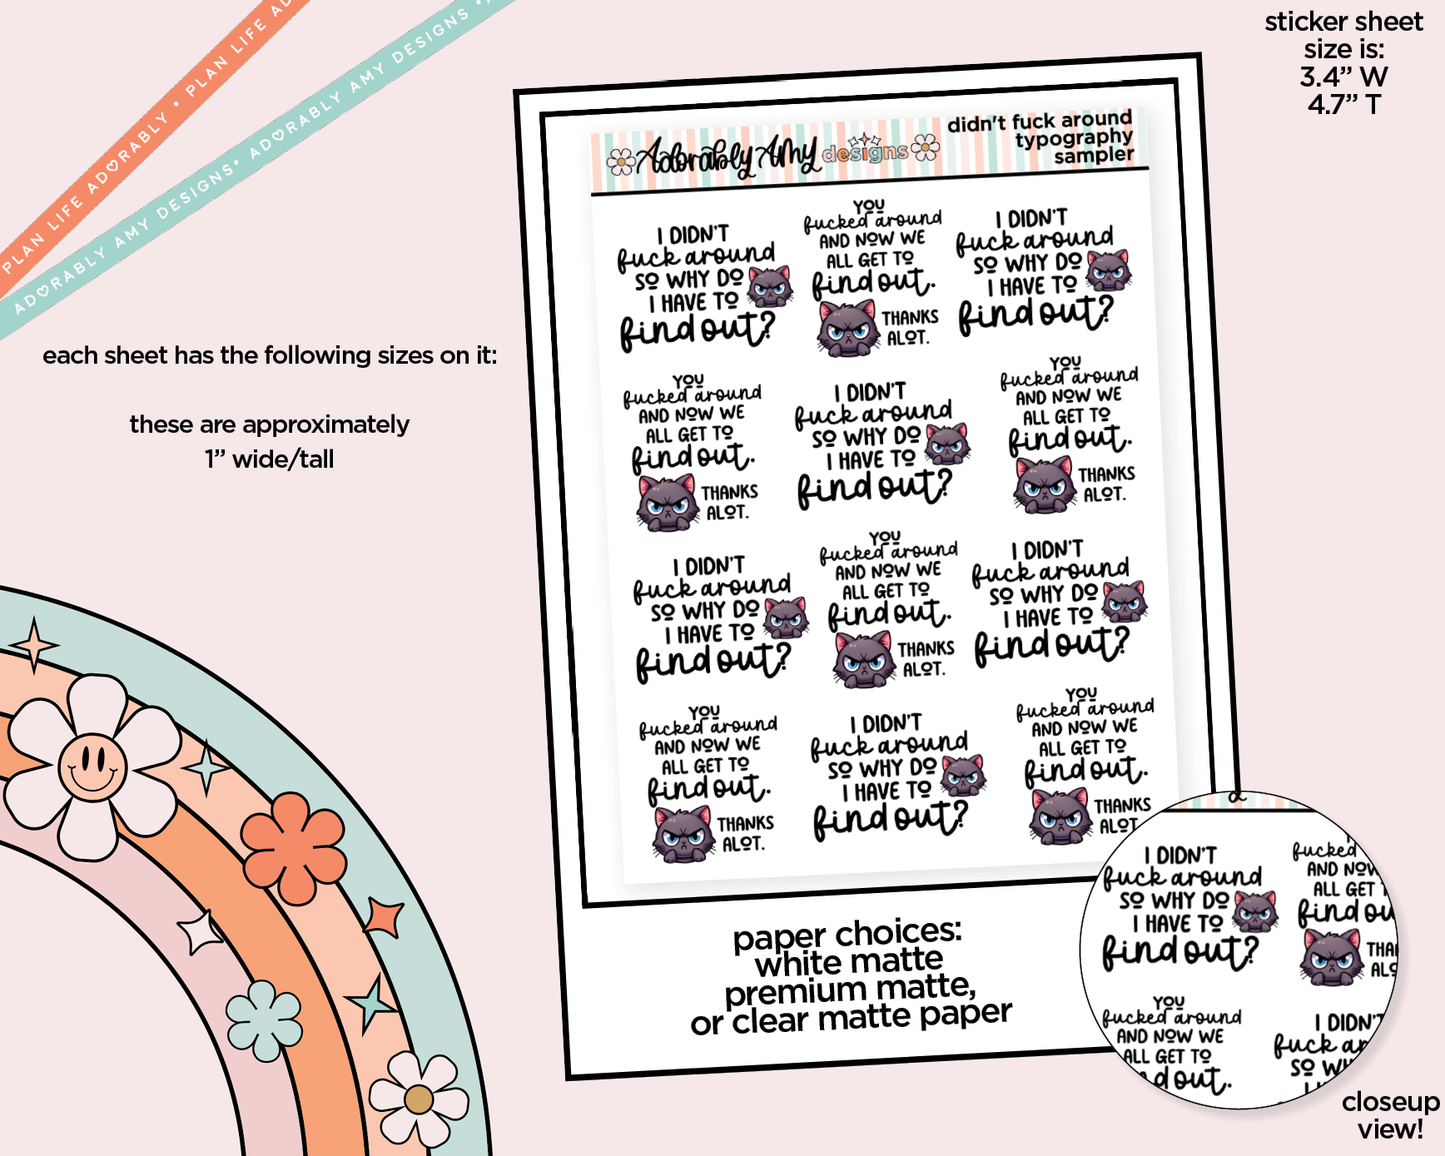 PLAN LIFE ADORABLY • PLAN LIFE AD
ADORABLY AMY DESIGNS • ADORABLY AMY DESIGNS •
sticker sheet
size is:
3.4” W
4.7” T
each sheet has the following sizes on it:
these are approximately
1” wide/tall
Adorably Amy designs
didn't fuck around
typography
sampler
I DIDN'T
fuck around
SO WHY DO
I HAVE TO
find out?
YOU
fucked around
AND NOW WE
ALL GET TO
find out.
THANKS
ALOT.
I DIDN'T
fuck around
SO WHY DO
I HAVE TO
find out?
YOU
fucked around
AND NOW WE
ALL GET TO
find out.
THANKS
ALOT.
I DIDN'T
fuck around
SO WHY DO
I HAVE TO
find out?
YOU
fucked around
AND NOW WE
ALL GET TO
find out.
THANKS
ALOT.
I DIDN'T
fuck around
SO WHY DO
I HAVE TO
find out?
YOU
fucked around
AND NOW WE
ALL GET TO
find out.
THANKS
ALOT.
I DIDN'T
fuck around
SO WHY DO
I HAVE TO
find out?
YOU
fucked around
AND NOW WE
ALL GET TO
find out.
THANKS
ALOT.
I DIDN'T
fuck around
SO WHY DO
I HAVE TO
find out?
YOU
fucked around
AND NOW WE
ALL GET TO
find out.
THANKS
ALOT
paper choices:
white matte
premium matte,
or clear matte paper
I DIDN'T
fuck around
SO WHY DO
I HAVE TO
find out?
fucked
AND NOW
ALL GET
find ou
THA
ALO
YOU
fucked around
AND NOW WE
ALL GET TO
d out.
I DIDN'T
fuck ar
SO WH
closeup
view!